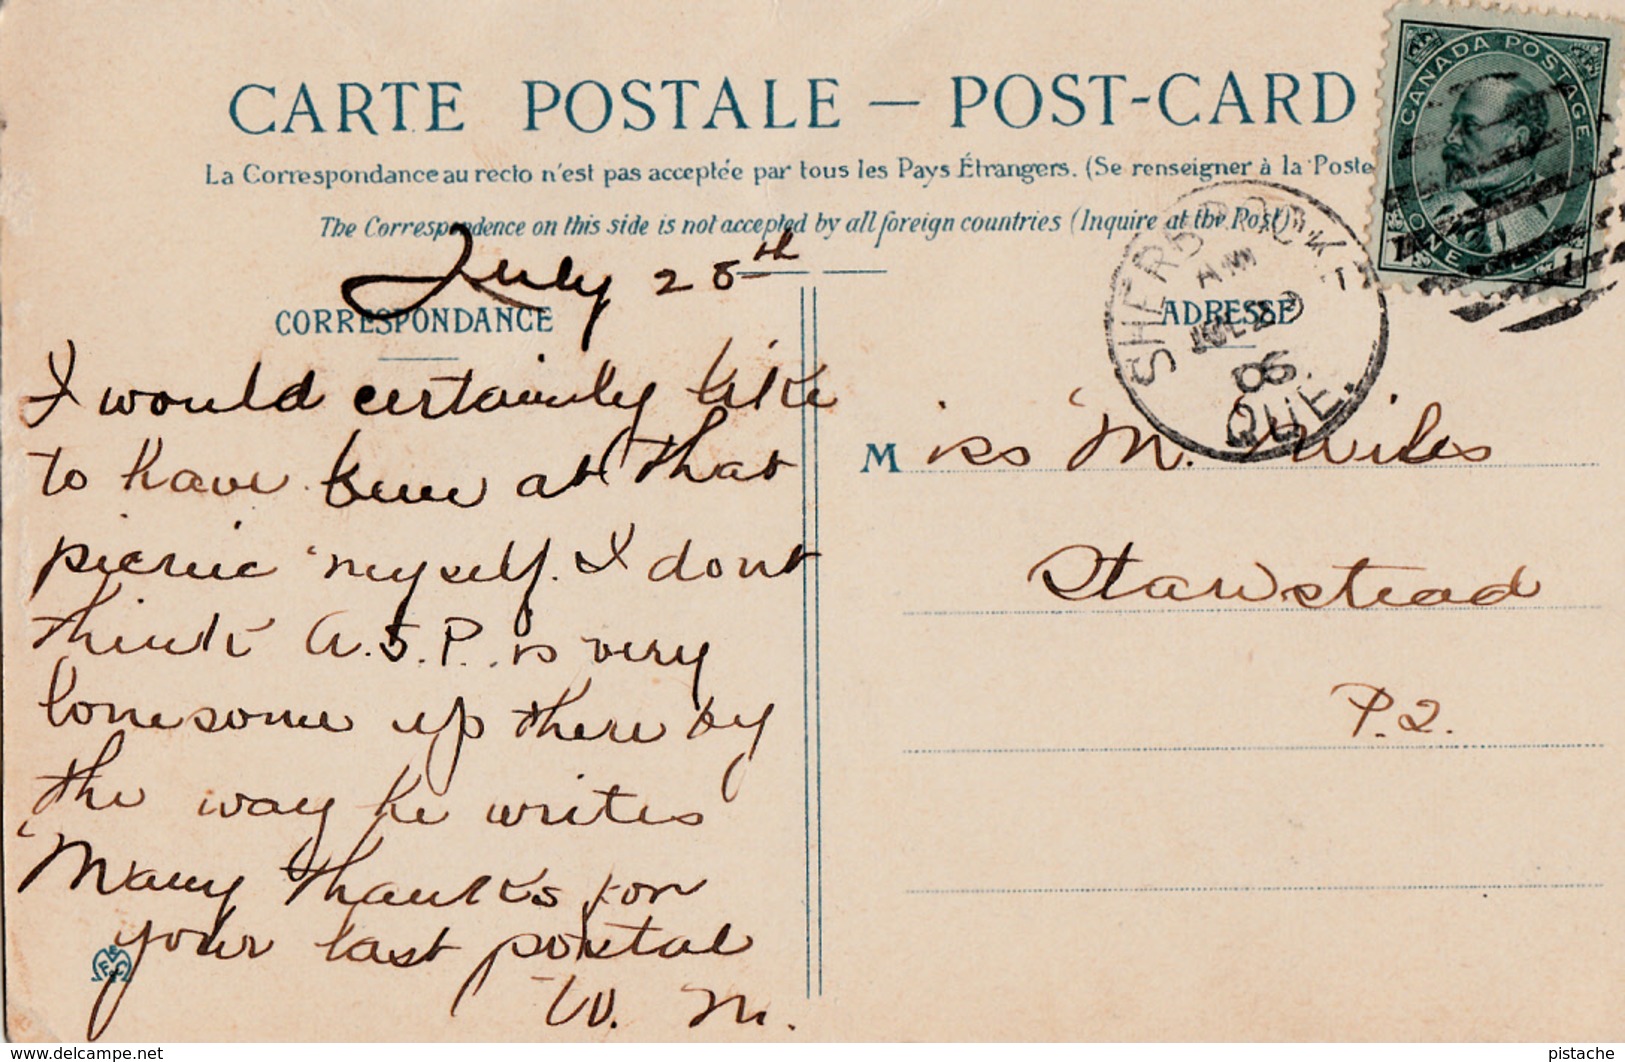 CARTE POSTALE — POST-CARD
La Correspondance au recto n'est pas acceptée par tous les Pays Étrangers. (Se renseigner à la Poste
The Correspondence on this side is not accepted by all foreign countries (Inquire at the Post)
July 28th
CORRESPONDANCE
I would certainly like
to have been at that
picnic myself. I dont
think A.S.P. is very
lonesome up there by
the way he writes
Many thanks for
your last postal
W. M.
CANADA POSTAGE
ONE
SHERBROOKE
AM
JUL 29
06
QUE.
ADRESSE
Miss M. Miles
Stanstead
P.2.
www.delcampe.net
pistache